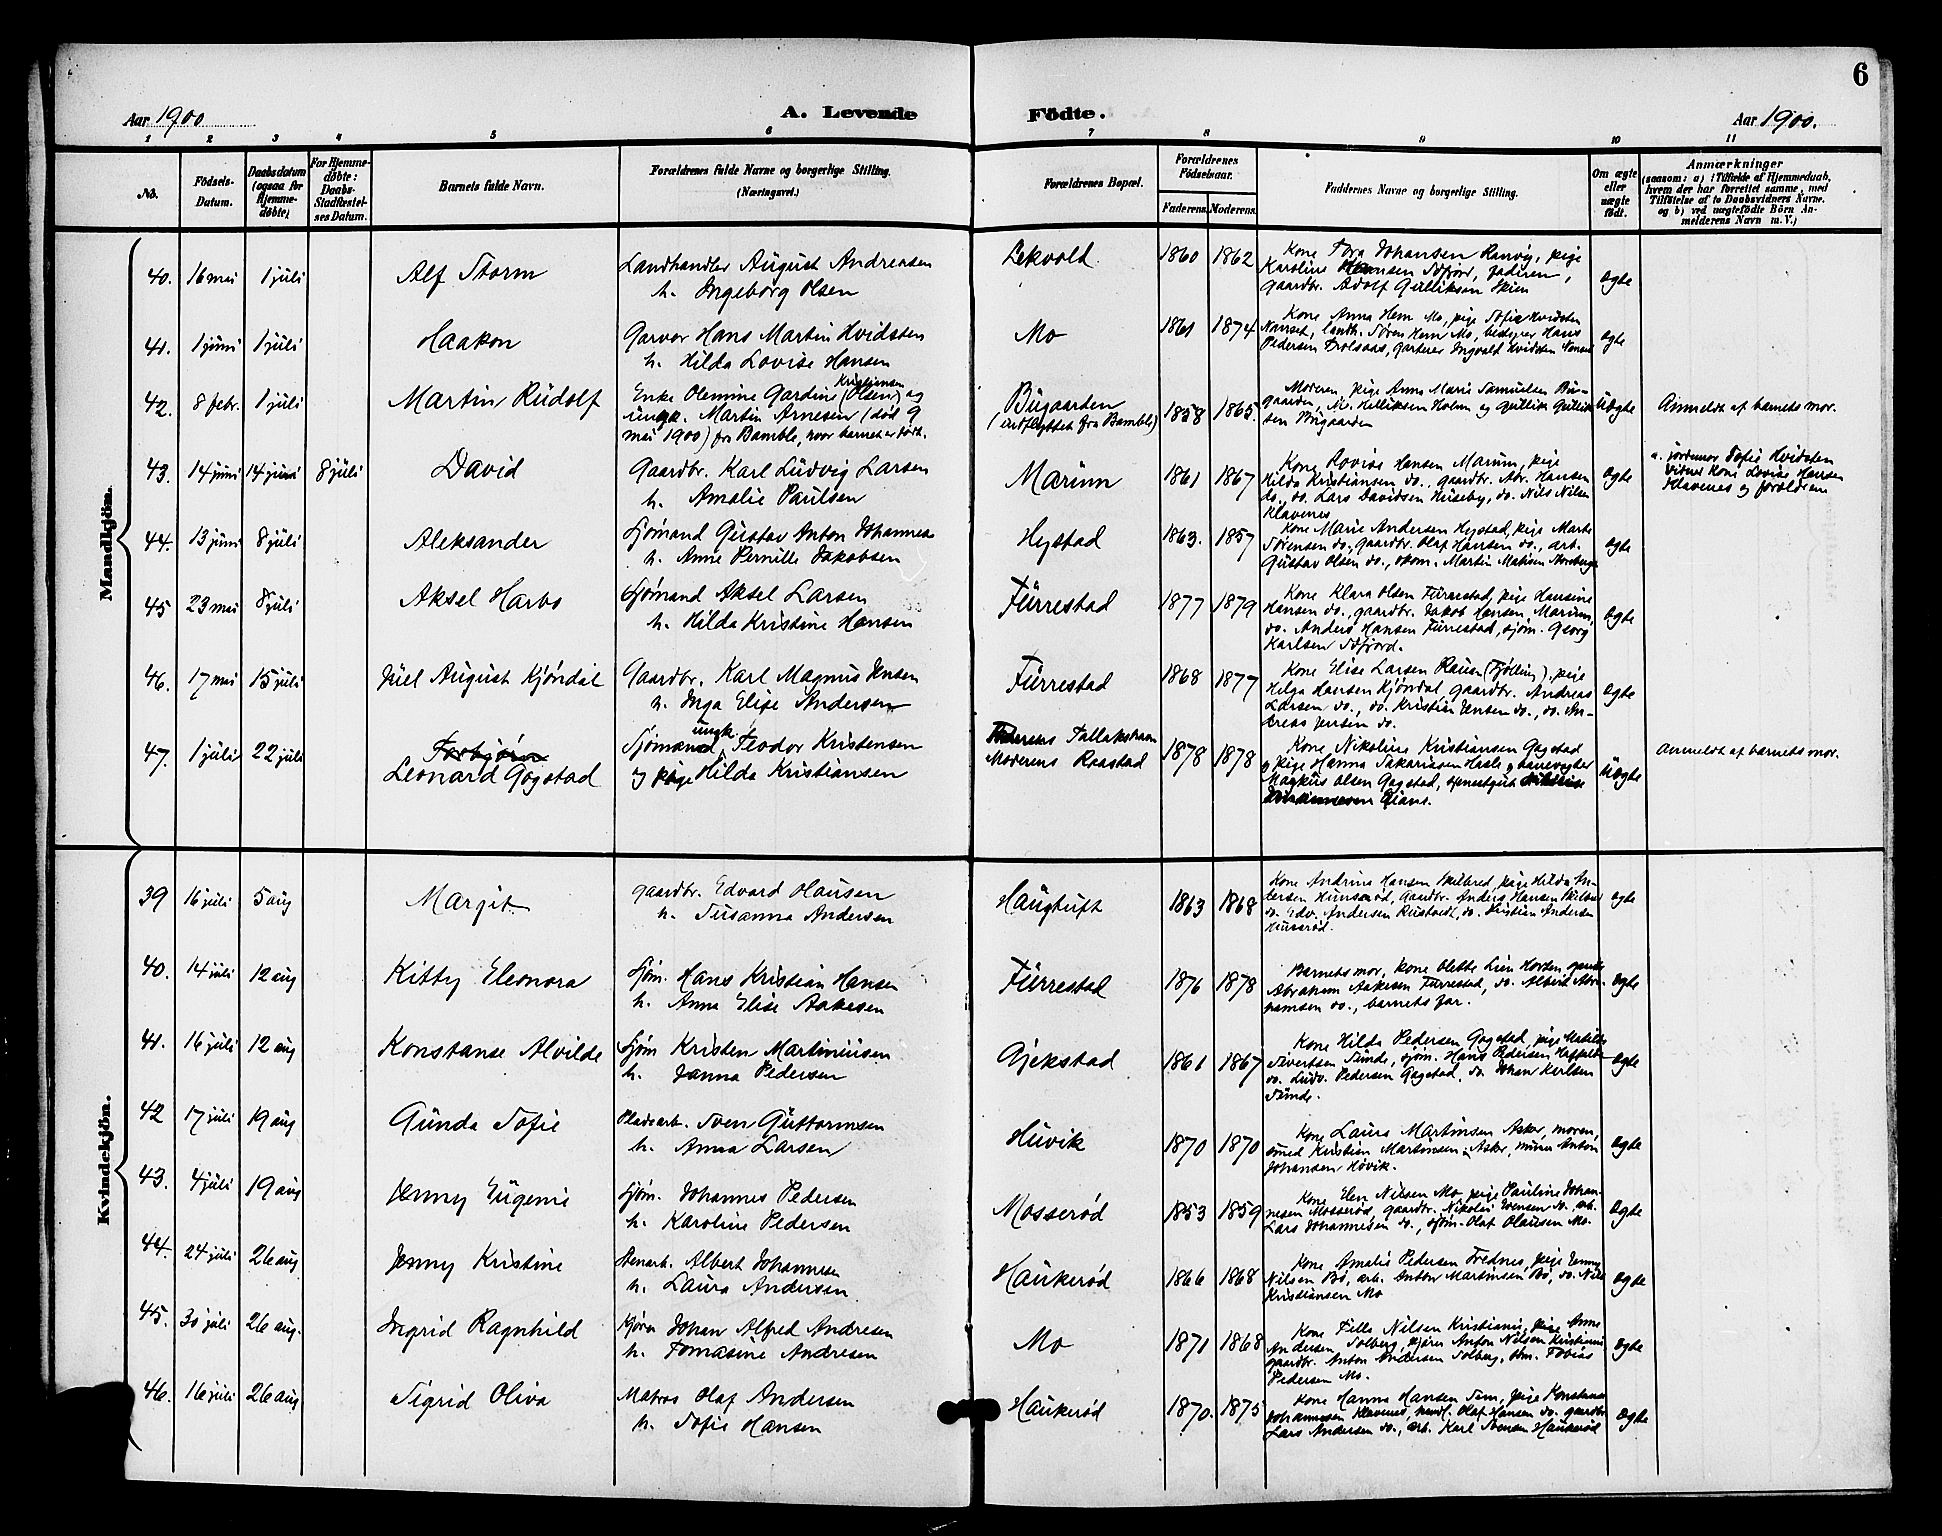 6
Aar 1900
A. Levende Födte.
Aar 1900.
1 2 3 4 5 6 7 8 9 10 11
No.
Födsels-Datum.
Daabsdatum (ogsaa for Hjemme-døbte)
For Hjemme-døbte: Daabs-Stadfæstel-ses Datum.
Barnets fulde Navn.
Forældrenes fulde Navne og borgerlige Stilling.
(Næringsvei.)
Forældrenes Bopæl.
Forældrenes Födselsaar.
Faderens. Moderens.
Faddernes Navne og borgerlige Stilling.
Om ægte eller uægte født.
Anmærkninger
(saasom: a) i Tilfælde af Hjemmedaab,
hvem der har forrettet samme, med
Tilføielse af to Daabsvidners Navne.
og b) ved uægtefødte Börn An-
melderens Navn m. V.)
Mandkjön.
40. 16 mai 1 juli Alf Storm
Landhandler August Andreasen
h. Ingeborg Olsen
Lekvold 1860 1862
Kone Tora Johansen Ranvig, pige
Karoline Hansen Sdfjord, faderen,
gaardbr. Adolf Gulliksen Skien
ægte
41. 1 juni 1 juli Haakon
Garver Hans Martin Hvidsten
h. Hilda Lovise Hansen
Mo 1861 1874
Kone Anna Hem Mo, pige Sofie Hvidsten
Nanset, landh. Søren Hem Mo, bestyrer Hans
Pedersen Trolsaas, garver Ingvald Hvidsten Nanset
ægte
42. 8 febr. 1 juli Martin Rudolf
Enke Olemine Gardine Kristiansen (Olsen) og
ungk. Martin Arnesen (død 9
mai 1900) fra Bamble, hvor barnet er født.
Bugaarden
(indflyttet fra Bamble)
1858 1865.
Moderen, pige Anna Marie Samuelsen Bu-
gaarden, Nils Helliksen Holm og Gullik Gullik-
sen Bugaarden
Uægte
Anmeldt af barnets mor.
43. 14 juni 14 juni 8 juli David
Gaardbr. Karl Ludvig Larsen
h. Amalie Paulsen
Marum 1861 1867
Kone Lovise Hansen Marum, pige
Hilda Kristiansen do., gaardbr. Abr. Hansen
do., do. Lars Davidsen Huseby, do. Nils Nilsen
Klavenes
ægte
a. jordemor Sofie Hvidsten
vidner Kone Lovise Hansen
Klavenes og forældrene
44. 13 juni 8 juli Aleksander
Sjømand Gustav Anton Johannesen
h. Anne Pernille Jakobsen
Hystad 1863. 1857
Kone Marie Andersen Hystad, pige Marte
Sørensen do., gaardbr. Olaf Hansen do., arb.
Gustav Olsen do., skom. Martin Mathisen
ægte
45 23 mai 8 juli Aksel Harbo
Sjømand Aksel Larsen
h. Hilda Kristine Hansen
Furrestad 1877 1879
Kone Klara Olsen Furrestad, pige Hansine
Hansen do., gaardbr. Jakob Hansen Marum,
do. Anders Hansen Furrestad, sjøm. Georg
Karlsen Sdfjord.
ægte
46. 17 mai 15 juli Juel August Kjøndal
Gaardbr. Karl Magnus Jensen
h. Inga Elise Andersen
Furrestad 1868 1877
Kone Elise Larsen Rauan (Tjølling), pige
Helga Hansen Kjøndal, gaardbr. Andreas
Larsen do., do. Kristian Jensen do., do. An-
dreas Jensen do.
ægte
47. 1 juli 22 juli Torbjørn
Leonard Gogstad
Sjømand ungk. Teodor Kristensen
og pige Hilda Kristiansen
Faderens Tallakshavn
Moderens Raastad
1878 1878
Kone Nikoline Kristiansen Gogstad
og pige Hanna Sakariassen Hasle og banevogter
Markus Olsen Gogstad, tjenestegut
Uægte
Anmeldt af barnets mor.
Kvindekjön.
39 16 juli 5 aug Margit
gaardbr. Edvard Hansen
h. Susanna Andersen
Haugtuft 1863 1868
Kone Andrine Hansen Skilbred, pige Hilda An-
dersen Hunsrød, Gaardbr. Anders Hansen Skilbred
do. Edv. Andersen Rustvedt, do. Kristian Andersen
Hunsrød.
ægte
40. 14 juli 12 aug Kitty Eleonora
Sjøm. Hans Kristian Hansen
h. Anna Elise Aakesen
Furrestad 1876 1878
Barnets mor, kone Olette Lien Horten,
Abraham Aakesen Furrestad, do. Albert Abra-
hamsen do., barnets far.
ægte
41. 16 juli 12 aug Konstanse Alvilde
Sjøm Kristen Martiniusen
h. Janna Pedersen
Gjekstad 1861 1867
Kone Hilda Pedersen Gogstad, pige Matilde
Sivertsen Sunde, sjøm. Hans Pedersen
do. Ludv. Pedersen Gogstad, do. Johan Karlsen
Sunde.
ægte
42 17 juli 19 aug Gunda Sofie
Pladsarb. Sven Guttormsen
h. Anna Larsen
Huvik 1870 1870
Kone Laura Martinsen Asker, moren,
smed Kristian Martinsen Asker, murer Anton
Johansen Høvik.
ægte
43. 4 juli 19 aug Jenny Eugenie
Sjøm. Johannes Pedersen
h. Karoline Pedersen
Mosserød 1853 1859
Kone Elen Nilsen Mo, pige Pauline Johan-
nesen Mosserød, gaardbr. Nikolai Evensen do. arb.
Lars Johannesen do., sjøm. Olaf Olausen Mo.
ægte
44. 24 juli 26 aug Jenny Kristine
Stenarb. Albert Johannesen
h. Laura Andersen
Haukerød 1866 1868
Kone Amalie Pedersen Frednes, pige Jenny
Nilsen Bø, arb. Anton Martinsen Bø, do. Nils
Kristiansen Mo
ægte
45. 30 juli 26 aug. Ingrid Ragnhild
Kjører Johan Alfred Andresen
h. Tomasine Andresen
Mo 1871 1868
Kone Tilla Nilsen Kristiania, pige Anna
Andersen Solberg, kjører Anton Nilsen Kristiania
gaardbr. Anton Andersen Solberg, skm. Tobias
Pedersen Mo.
ægte
46. 16 juli 26 aug Sigrid Oliva
Matros Olaf Andersen
h. Sofie Hansen
Haukerød 1870. 1875
Kone Hanna Hansen Sem, pige Konstanse
Johannesen Klavenes, handl. Olaf Hansen do. gaardbr.
Lars Andersen do., arb. Karl Svensen Haukerød
ægte